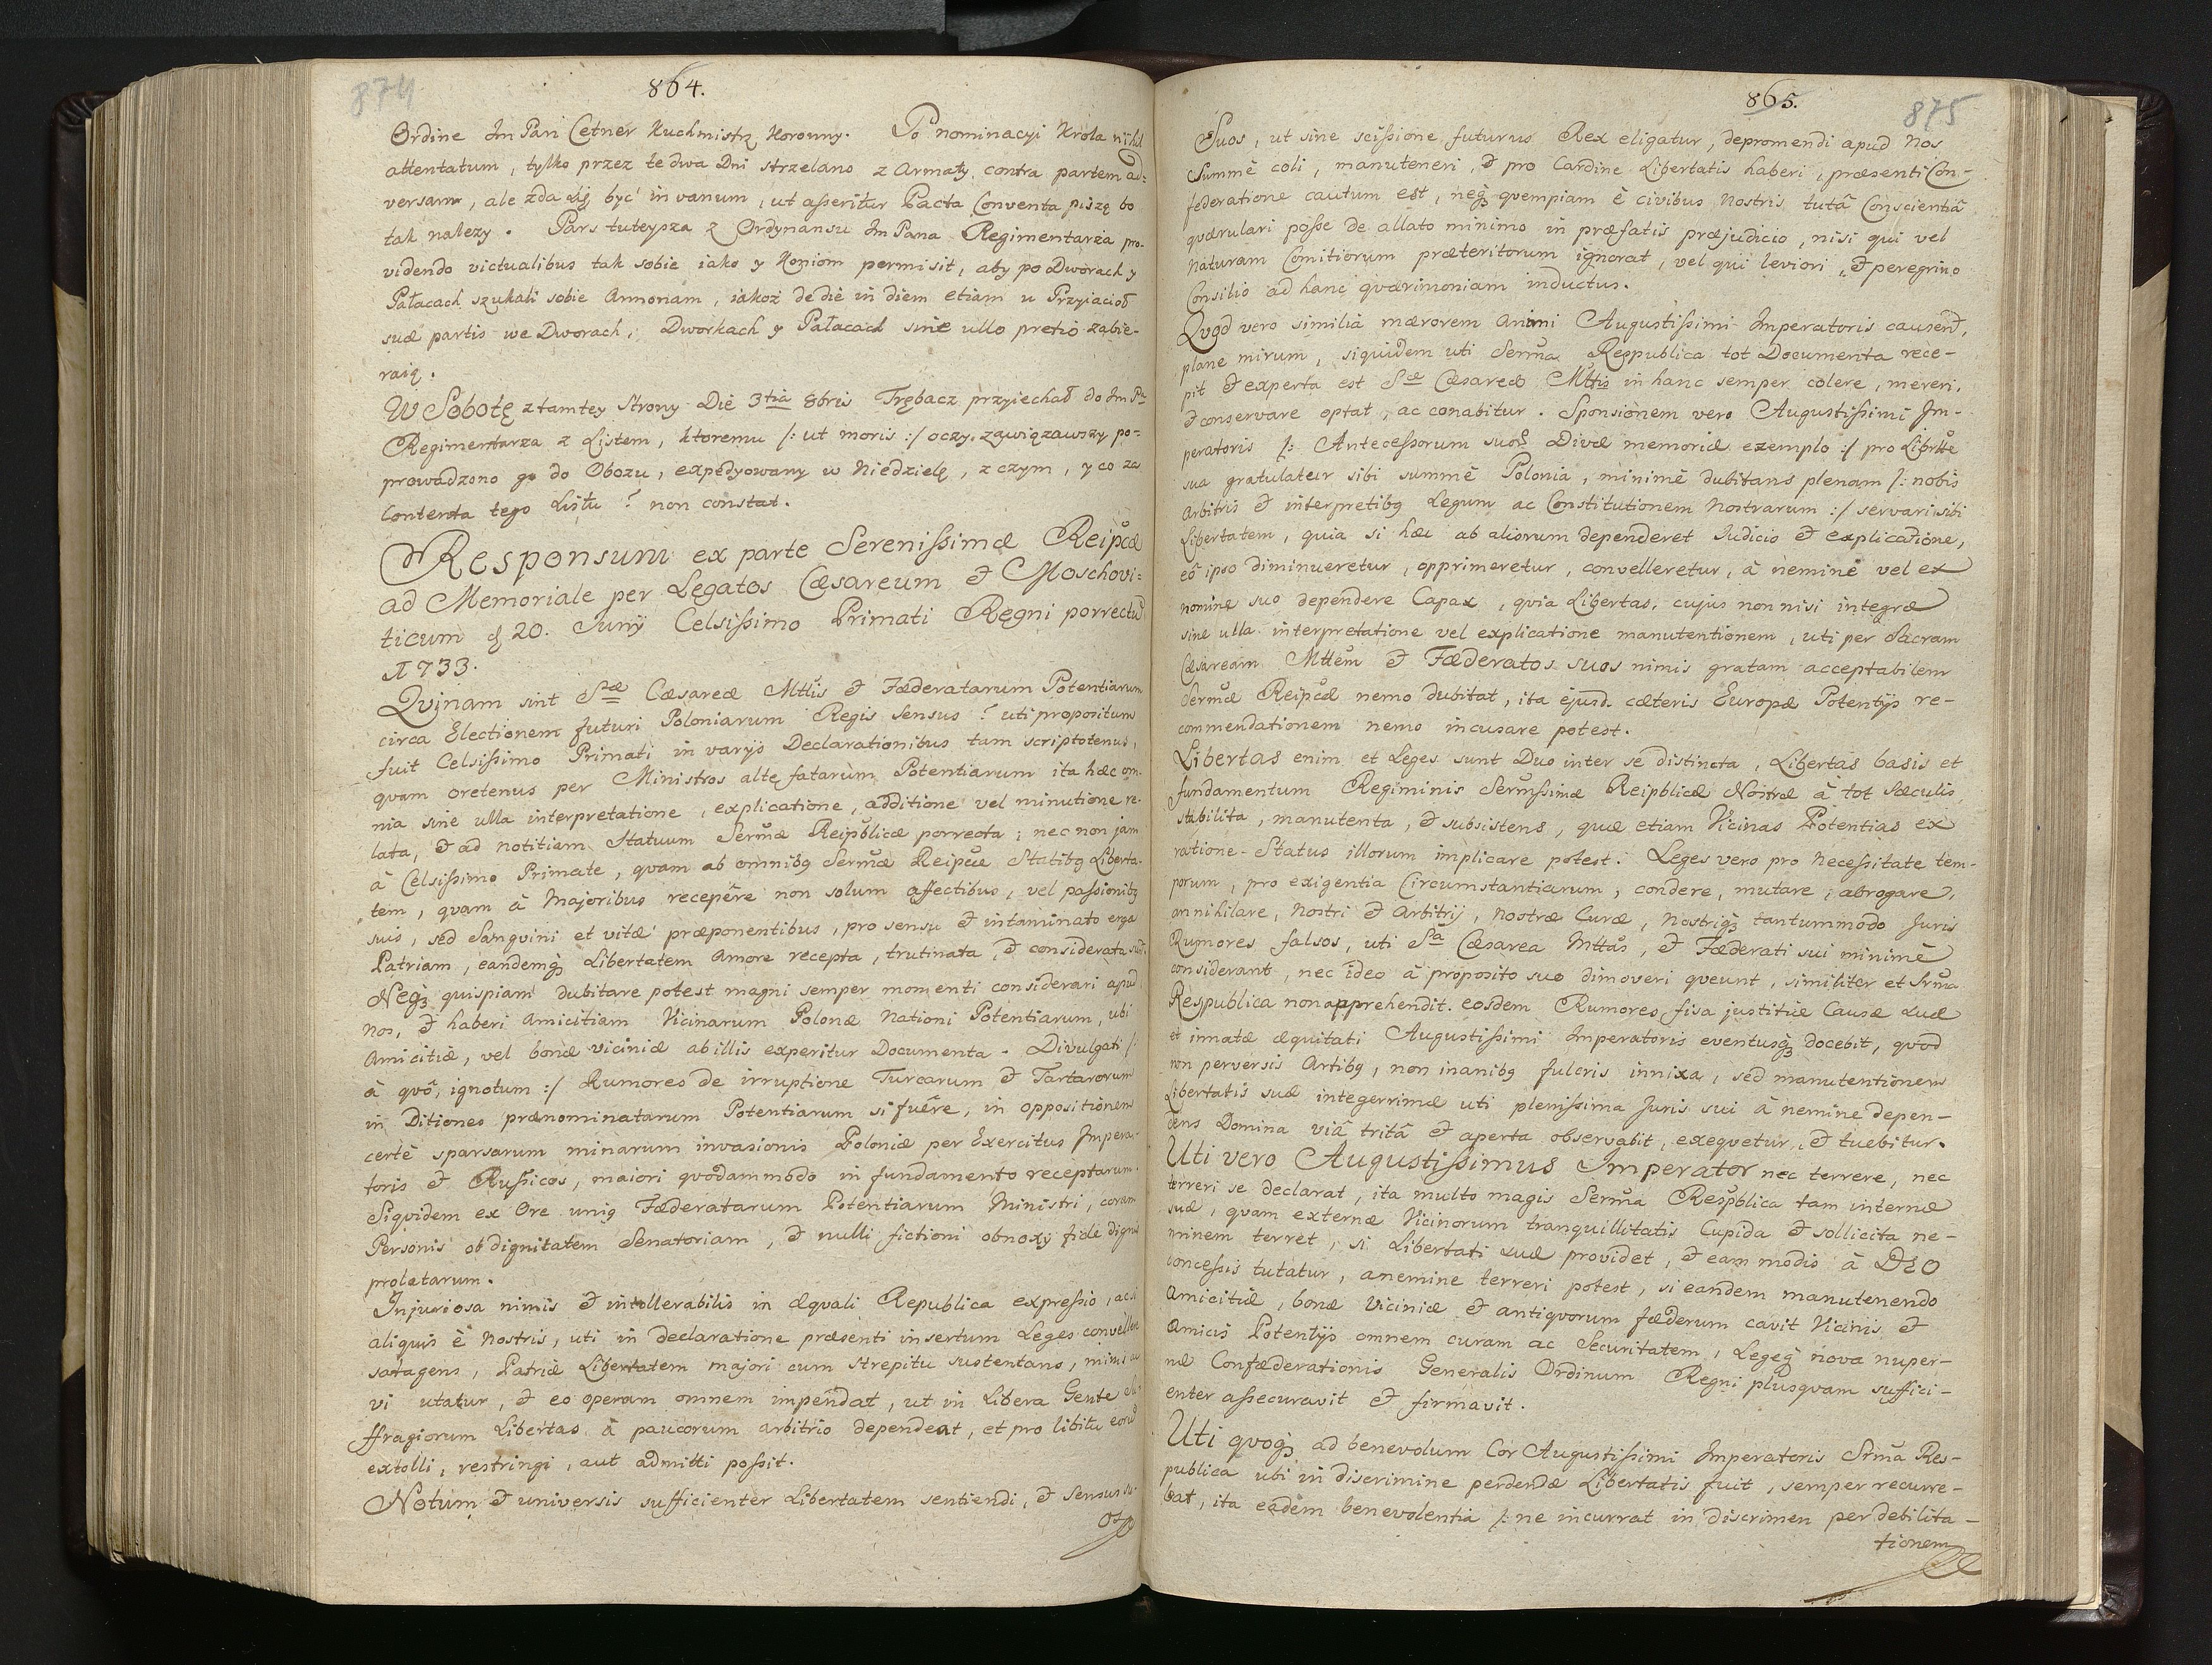 874
864.
Ordine Jm Pan Cetner Kuchmistrz Koronny. Po nominacyi Krola nihil
attentatum, tylko przez te dwa Dni strzelano z Armaty contra partem ad=
versam, ale zda się być in vanum, ut asseritur Pacta Conventa piszą bo
tak nalezy. Pars tuteysza z Ordynansu Jm Pana Regimentarza pro-
videndo victualibus tak sobie iako y Koniom permisit, aby po Dworach y
Pałacach szukali sobie Annonam, iakoż de die in diem etiam u Przyiacioł
suæ partis we Dworach, Dworkach y Pałacach sine ullo pretio zabie-
raią.
W Sobotę z tamtey Strony Die 3tia 8bris Trębacz przyiechał do Jm Pa
Regimentarza z Listem, ktoremu /: ut moris :/ oczy zawiązawszy po-
prowadzono go do Obozu, expedyowany w Niedzielę, z czym, y co za
Contenta tego Listu? non constat.
Responsum ex parte Serenissimæ Reipcæ
ad Memoriale per Legatos Cæsareum et Moschovi=
ticum d 20. Junij Celsissimo Primati Regni porrectu
1733.
Qvinam sint Sæ Cæsareæ Mttis et Fæderatarum Potentiarum
circa Electionem futuri Poloniarum Regis Sensus? uti propositum
fuit Celsissimo Primati in varijs Declarationibus tam scriptotenus,
qvam oretenus per Ministros alte fatarum Potentiarum ita hæc om-
nia sine ulla interpretatione, explicatione, additione vel minutione re-
lata, et ad notitiam Statuum Sermæ Reipublicæ porrecta; nec non jam
à Celsissimo Primate, qvam ab omnibq Sermæ Reipcæ Statibq Liberta-
tem, qvam à Majoribus recepêre non solum affectibus, vel passionibq
suis, sed Sangvini et vitæ præponentibus, pro sensu et intaminato erga
Patriam, eandemq Libertatem Amore recepta, trutinata, et considerata sunt.
Neq quispiam dubitare potest magni semper momenti considerari apud
nos, et haberi Amicitiam Vicinarum Polonæ Nationi Potentiarum, ubi
Amicitiæ, vel bonæ viciniæ ab illis experitur Documenta. Divulgati /:
à qvô, ignotum :/ Rumores de irruptione Turcarum et Tartarorum
in Ditiones prænominatarum Potentiarum si fuêre, in oppositionem
certè sparsarum minarum invasionis Poloniæ per Exercitus Impera-
toris et Russicos, maiori qvodammodo in fundamento receptarum.
Siqvidem ex Ore uniq Fæderatarum Potentiarum Ministri, coram
Personis ob dignitatem Senatoriam, et nulli fictioni obnoxij fide dignis
prolatarum.
Injuriosa nimis et intollerabilis in æquali Republica expressio, acsi
aliquis è Nostris, uti in declaratione præsenti insertum Leges convellere
satagens, Patriæ Libertatem majori cum strepitu sustentans, minis ac
vi utatur, et eo operam omnem impendat, ut in Libera Gente su-
ffragiorum Libertas à paucorum arbitrio dependeat, et pro libitu eorum
extolli, restringi, aut admitti possit.
Notum et universis sufficienter Libertatem sentiendi, et Sensus su-
os
875
865.
Suos, ut sine scissione futurus Rex eligatur, depromendi apud Nos
Summè coli, manuteneri, et pro Cardine Libertatis haberi, præsenti Con-
federatione cautum est, neq qvempiam è civibus Nostris tutâ Conscientiâ
qværulari posse de allato minimo in præfatis præjudicio, nisi qui vel
Naturam Comitiorum præteritorum ignorat, vel qui leviori, et peregrino
Consilio ad hanc qværimoniam inductus.
Qvod vero similia mærorem Animi Augustissimi Imperatoris causent,
plane mirum, siquidem uti Serma Respublica tot Documenta rece-
pit et experta est Sæ Cæsareæ Mttis in hanc semper colere, mereri,
et conservare optat, ac conabitur. Sponsionem vero Augustissimi Im-
peratoris /: Antecessorum suor Divæ memoriæ exemplo :/ pro Libtte
sua gratulatur sibi summè Polonia, minimè dubitans plenam /: nobis
Arbitris et interpretibq Legum ac Constitutionem Nostrarum :/ servari sibi
Libertatem, quia si hæc ab aliorum dependeret Judicio et explicatione,
eô ipso diminueretur, opprimeretur, convelleretur, à nemine vel ex
nomine suo dependere Capax, qvia Libertas, cujus non nisi integræ
sine ulla interpretatione vel explicatione manutentionem, uti per Sacram
Cæsaream Mttem et Fæderatos suos nimis gratam acceptabilem
Sermæ Reipcæ nemo dubitat, ita ejusd. cæteris Europæ Potentijs re-
commendationem nemo incusare potest.
Libertas enim et Leges sunt Duo inter se distincta, Libertas basis et
fundamentum Regiminis Sermssimæ Reipblicæ Nostræ à tot Sæculis
stabilita, manutenta, et subsistens, quæ etiam Vicinas Potentias ex
ratione Status illorum implicare potest. Leges vero pro Necessitate tem-
porum, pro exigentia Circumstantiarum, condere, mutare, abrogare,
annihilare, Nostri et Arbitrij, Nostræ Curæ, Nostriq tantummodo Juris
Rumores falsos, uti Sa Cæsarea Mttas, et Fæderati sui minimè
considerant, nec ideo à proposito suo dimoveri qveunt, similiter et Srma
Respublica non apprehendit eosdem Rumores, fisa justitiæ Causæ suæ
et innatæ æquitati Augustissimi Imperatoris eventusq docebit, qvod
non perversis Artibq, non inanibq fulcris innixa, sed manutentionem
Libertatis suæ integerrimæ uti plenissima Juris sui à nemine depen-
dens Domina viâ tritâ et aperta observabit, exeqvetur, et tuebitur.
Uti vero Augustissimus Imperator nec terrere, nec
terreri se declarat, ita multo magis Serma Respblica tam internæ
suæ, qvam externæ Vicinorum tranquillitatis Cupida et sollicita ne-
minem terret, si Libertati suæ providet, et eam modis à DEO
concessis tutatur, a nemine terreri potest, si eandem manutenendo
Amicitiæ, bonæ Viciniæ et antiqvorum fæderum cavit Vicinis et
Amicis Potentijs omnem curam ac Securitatem, Legeq nova nuper-
næ Confæderationis Generalis Ordinum Regni plusqvam suffici-
enter assecuravit et firmavit.
Uti qvoq ad benevolum Cor Augustissimi Imperatoris Srma Res-
publica ubi in discrimine perdendæ Libertatis fuit, semper recurre-
bat, ita eadem benevolentia /: ne incurrat in discrimen per debilita-
tionem